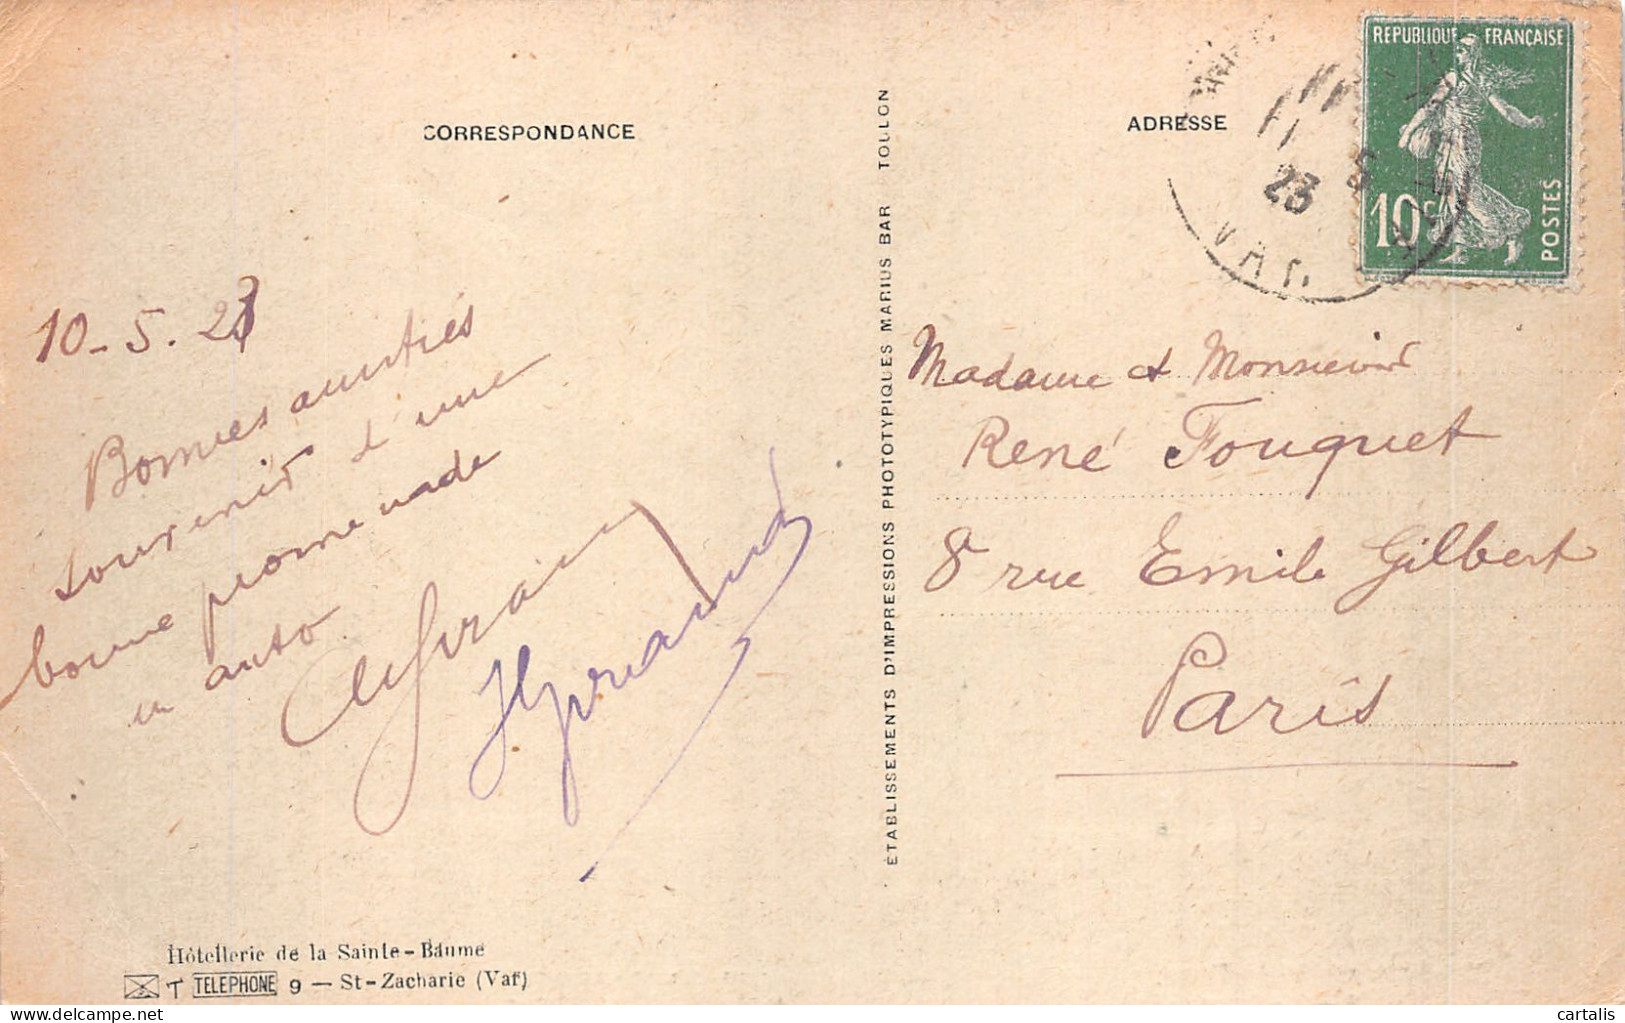 CORRESPONDANCE
ADRESSE
REPUBLIQUE FRANÇAISE
10c
POSTES
23
5
VAR
10-5.23
Bonnes amitiés
souvenir d'une
bonne promenade
en auto
Madame et Monsieur
René Fouquet
8 rue Emile Gilbert
Paris
ÉTABLISSEMENTS D'IMPRESSIONS PHOTOTYPIQUES MARIUS BAR TOULON
Hôtellerie de la Sainte-Baume
T TELEPHONE 9 — St-Zacharie (Var)
delcampe.net
cartalis